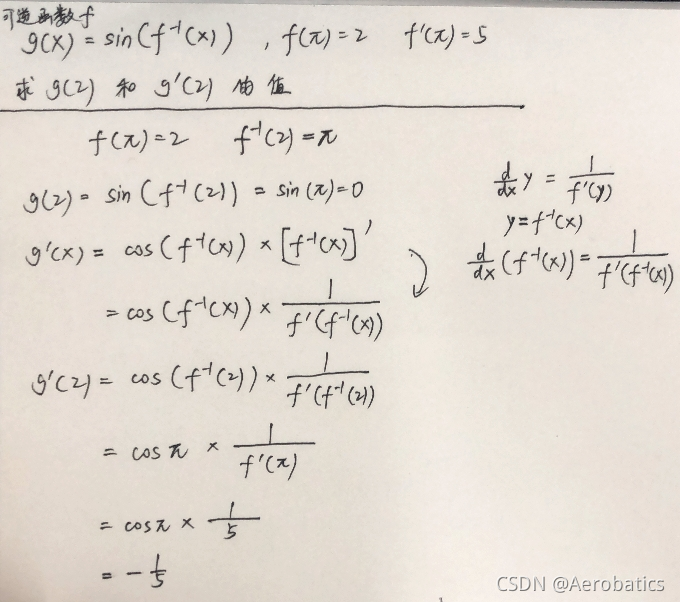 可逆函数f
g(x) = sin(f⁻¹(x)) , f(π)=2 f'(π)=5
求 g(2) 和 g'(2) 的值
f(π)=2 f⁻¹(2)=π
g(2) = sin(f⁻¹(2)) = sin(π)=0
g'(x) = cos(f⁻¹(x)) × [f⁻¹(x)]'
= cos(f⁻¹(x)) × 1/f'(f⁻¹(x))
g'(2) = cos(f⁻¹(2)) × 1/f'(f⁻¹(2))
= cosπ × 1/f'(π)
= cosπ × 1/5
= -1/5
d/dx y = 1/f'(y)
y=f⁻¹(x)
d/dx (f⁻¹(x)) = 1/f'(f⁻¹(x))
CSDN @Aerobatics